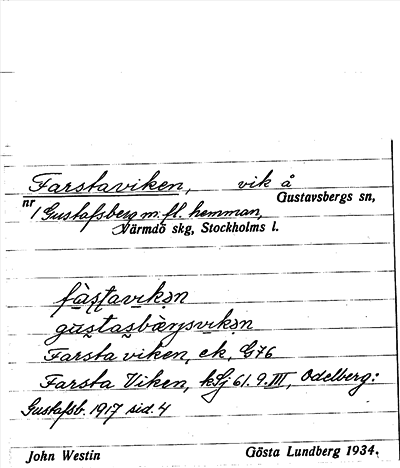 Farstaviken, vik å
Gustavsbergs sn,
nr 1 Gustafsberg m. fl. hemman,
Värmdö skg, Stockholms l.
fa̱ṣṭavi̱kən
gu̱stasbæ̱rjsvi̱kən
Farsta viken, ek, G76
Farsta Viken, 61. 9. III, Odelberg:
Gustafsb. 1917 sid. 4
John Westin
Gösta Lundberg 1934.